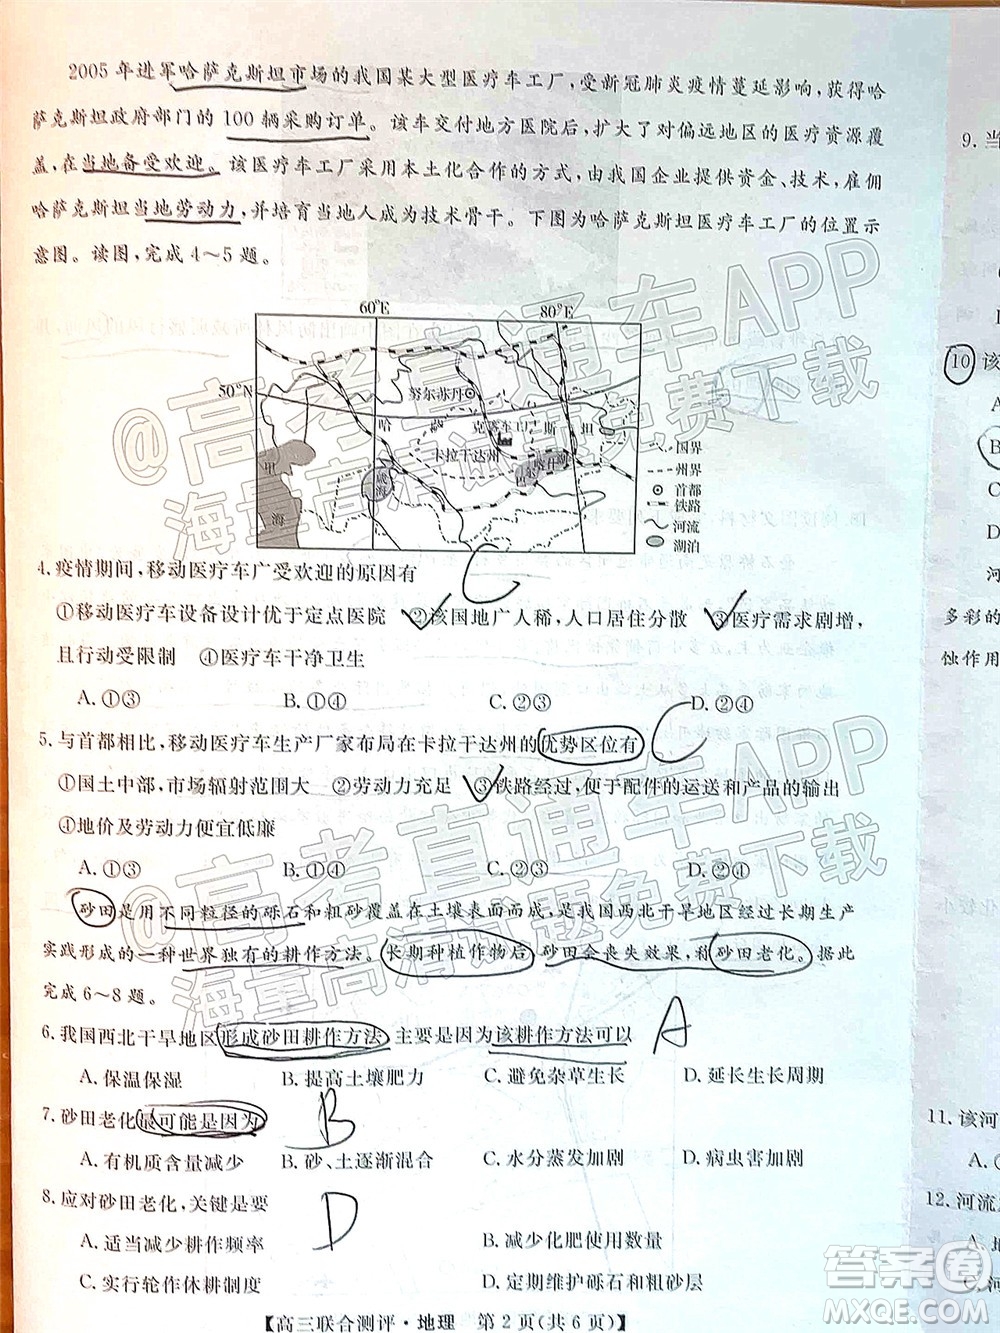 2005 年进军哈萨克斯坦市场的我国某大型医疗车工厂，受新冠肺炎疫情蔓延影响，获得哈
萨克斯坦政府部门的 100 辆采购订单。该车交付地方医院后，扩大了对偏远地区的医疗资源覆
盖，在当地备受欢迎。该医疗车工厂采用本土化合作的方式，由我国企业提供资金、技术，雇佣
哈萨克斯坦当地劳动力，并培育当地人成为技术骨干。下图为哈萨克斯坦医疗车工厂的位置示
意图。读图，完成 4～5 题。
60°E 80°E
50°N
努尔苏丹
哈 萨 克 斯 坦
卡拉干达州
里
海
咸海
国界
州界
首都
铁路
河流
湖泊
4. 疫情期间，移动医疗车广受欢迎的原因有
C
①移动医疗车设备设计优于定点医院 ②该国地广人稀，人口居住分散 ③医疗需求剧增，
且行动受限制 ④医疗车干净卫生
A. ①③ B. ①④ C. ②③ D. ②④
5. 与首都相比，移动医疗车生产厂家布局在卡拉干达州的优势区位有
C
①国土中部，市场辐射范围大 ②劳动力充足 ③铁路经过，便于配件的运送和产品的输出
④地价及劳动力便宜低廉
A. ①③ B. ①④ C. ②③ D. ②④
砂田是用不同粒径的砾石和粗砂覆盖在土壤表面而成，是我国西北干旱地区经过长期生产
实践形成的一种世界独有的耕作方法。长期种植作物后，砂田会丧失效果，称砂田老化。据此
完成 6～8 题。
6. 我国西北干旱地区形成砂田耕作方法，主要是因为该耕作方法可以
A
A. 保温保湿 B. 提高土壤肥力 C. 避免杂草生长 D. 延长生长周期
7. 砂田老化最可能是因为
B
A. 有机质含量减少 B. 砂、土逐渐混合 C. 水分蒸发加剧 D. 病虫害加剧
8. 应对砂田老化，关键是要
D
A. 适当减少耕作频率 B. 减少化肥使用数量
C. 实行轮作休耕制度 D. 定期维护砾石和粗砂层
【高三联合测评·地理 第 2 页(共 6 页)】
9. 当
10 该
A
B
C
D
河
多彩的
蚀作用
11. 该河
A. ①
C. ①
12. 河流
A. 地
@高考直通车APP
海量高清试题免费下载
@高考直通车APP
海量高清试题免费下载
答案圈
MXQE.COM